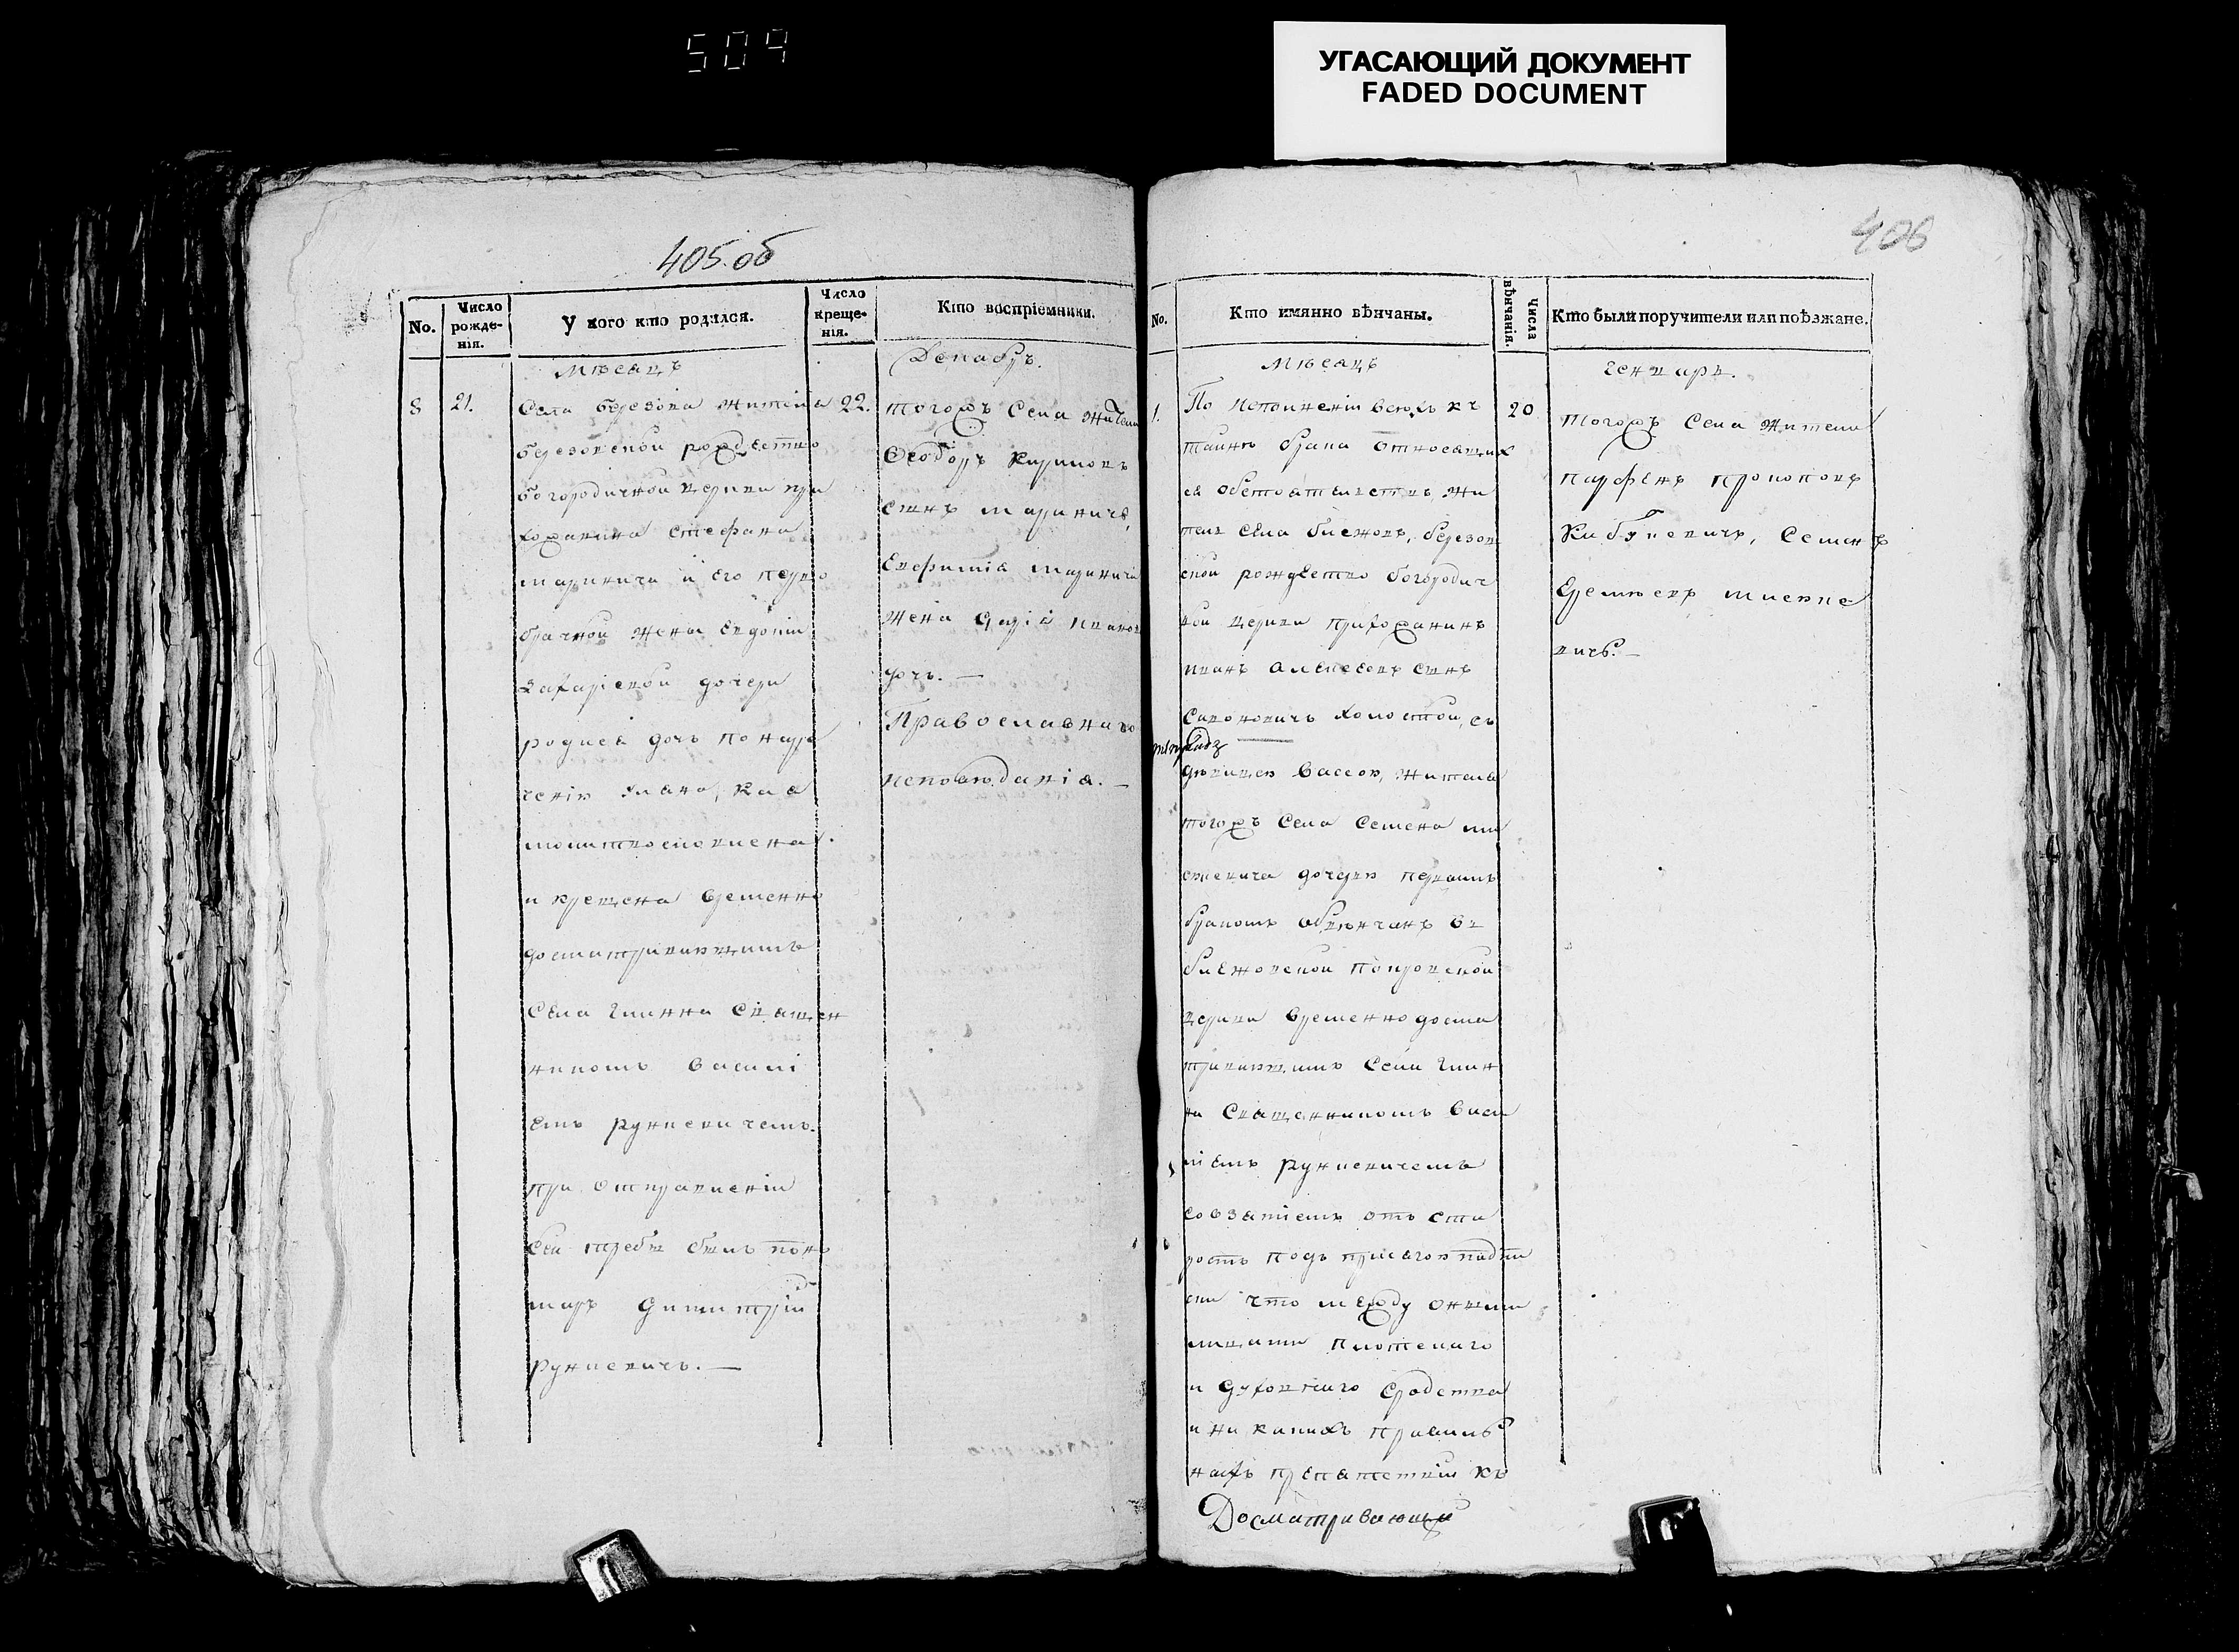 504
УГАСАЮЩИЙ ДОКУМЕНТ
FADED DOCUMENT
405.об
No.
Число рожде-нія.
У кого кто родился.
Число креще-нія.
Кто воспріемники.
Мѣсацъ
Декабръ.
8
21.
Села Березова жителя
березовской рождество
богородичной церкви при
хожанина Стефана
Маринича и его перво
брачной жены Евдокіи
Захаріевой дочери
родися дочь по наре
ченію
молитвословлена
и крещена временно
досматривающимъ
Села Глинна Священ
никомъ Василі
емъ Рункевичемъ.
При отправленіи
сей требы былъ поно
маръ Димитрій
Рункевичъ. —
22.
тогожъ Села житель
Ѳеодоръ Карповъ
сынъ Мариничъ,
Маринича
жена Дарія Иванов
дочь. —
Православнаго
исповѣданія. —
406
No.
Кто имянно вѣнчаны.
Числа вѣнчанія.
Кто были поручители или поѣзжане.
Мѣсацъ
Генваръ.
1.
По исполненіи всѣхъ къ
тайнѣ брака относящих
ся обстоятельствъ, жи
тель села Блежова, березов
ской рождество богородич
ной церкви прихожанинъ
Иванъ Алексеевъ сынъ
холостой, съ
дѣвицею Вассою, жителя
тогожъ Села Семена
дочерю первымъ
бракомъ обвѣнчанъ въ
блежовской покровской
церкви временно досма
тривающимъ Села Глин
на Священникомъ Васи
ліемъ Рункевичемъ
со взятіемъ отъ
подъ присягою подпи
ски что между оными
лицами плотскаго
и духовнаго сродства
и ни какихъ правиль
ныхъ препятствій къ
Досматривающій
20
тогожъ Села жители
Парфенъ Прокоповъ
Семенъ
Еремѣевъ
вичъ. —